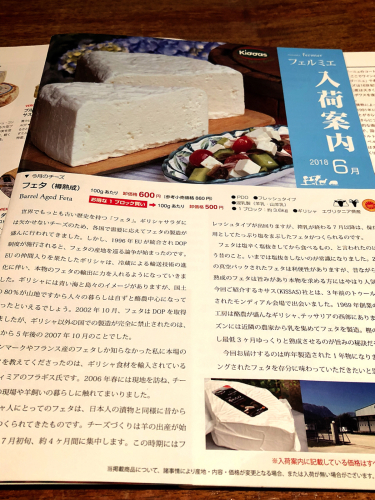 Kissas
Fermier
フェルミエ
入荷案内
2018 6月
▼今月のチーズ
フェタ (樽熟成)
Barrel Aged Feta
100g あたり 卸価格 600円
お得な1ブロック買い
100g あたり 卸価格 560円
●PDO ●フレッシュタイプ
●ギリシャ
世界でもっとも古い歴史を持つ「フェタ」。ギリシャサラダに
は欠かせないチーズのため、各国で需要に応えてフェタの製造が
盛んに行われてきました。しかし、1996年EUが統合されDOP
制度が施行されると、フェタの産地を巡る論争が始まったのです。
EUの仲間入りを果たしたギリシャは、冷蔵による輸送技術の進
化に伴い、本物のフェタの輸出に力を入れるようになっていきま
した。ギリシャには青い海と島々のイメージがありますが、国土
80%が山地ですから人々の暮らしは自ずと酪農中心になって
ったといえるでしょう。2002年10月、フェタはDOPを取得
ましたが、ギリシャ以外の国での製造が完全に禁止されたのは、
から5年後の2007年10月のことでした。
ンマークやフランス産のフェタしか知らなかった私に本場の
タを教えてくださったのは、ギリシャ食材を輸入されている
ィミアのフラギス氏です。2006年春には現地を訪ね、チー
の現場や羊飼いの暮らしに触れてまいりました。
ャ人にとってのフェタは、日本人の漬物と同様に昔から
つくられてきたものです。チーズづくりは羊の出産が始
7月初旬、約4ヶ月間に集中します。この時期にはフ
レッシュタイプが出回りますが、
フェタは塩辛く塩抜きしてから食べるもの、と言われたのに
う昔のこと。いまでは塩抜きしないのが常識になりました。
の真空パックされたフェタは利便性がありますが、昔ながら
熟成のフェタは旨みがあり本物を求める方にはやはり人気
今回ご紹介するキサス(KISSAS)社とは、3年前のトゥール
されたモンディアル会場で出会いました。1969年創業の
工房は酪農が盛んなギリシャ、テッサリアの西部にあります
ズンには近隣の農家から乳を集めてフェタを製造。
し最低3ヶ月ゆっくりと熟成させるのが旨みの秘訣だ
今回お届けするのは昨年製造された1年物になります
ングされたフェタを存分に味わっていただきたいと思
※入荷案内に記載している価格はすべ
当掲載商品について、諸事情により産地・内容・価格が変更となる場合、または入荷が無い場合がございます。